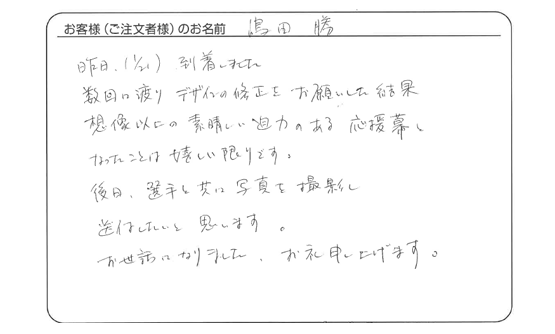 お客様（ご注文者様）のお名前 嶋田 勝
昨日、(1/21) 到着しました
数回に渡り デザインの修正を お願いした結果
想像以上の 素晴しい迫力のある 応援幕と
なったことは 嬉しい限りです。
後日、選手と共に 写真を 撮影し
送付したいと 思います。
お世話になりました、お礼申し上げます。